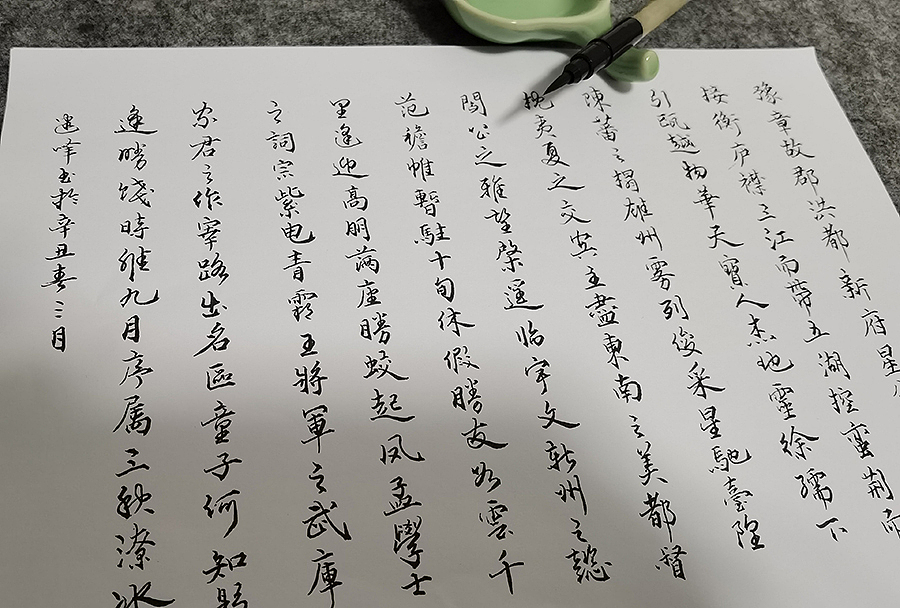 豫章故郡洪都新府星
接衡庐襟三江而帶五湖控蛮荆而
引瓯越物華天寶人杰地靈徐孺下
陳蕃之榻雄州雾列俊采星馳臺隍
枕夷夏之交宾主盡東南之美都督
閻公之雅望棨遥临宇文新州之懿
范襜帷暫駐十旬休假勝友如雲千
里逢迎高朋满座勝蛟起凤孟學士
之詞宗紫电青霜王將軍之武庫
家君之作宰路出名區童子何知躬
逢勝饯時維九月序属三秋潦水
峰书於辛丑春三月